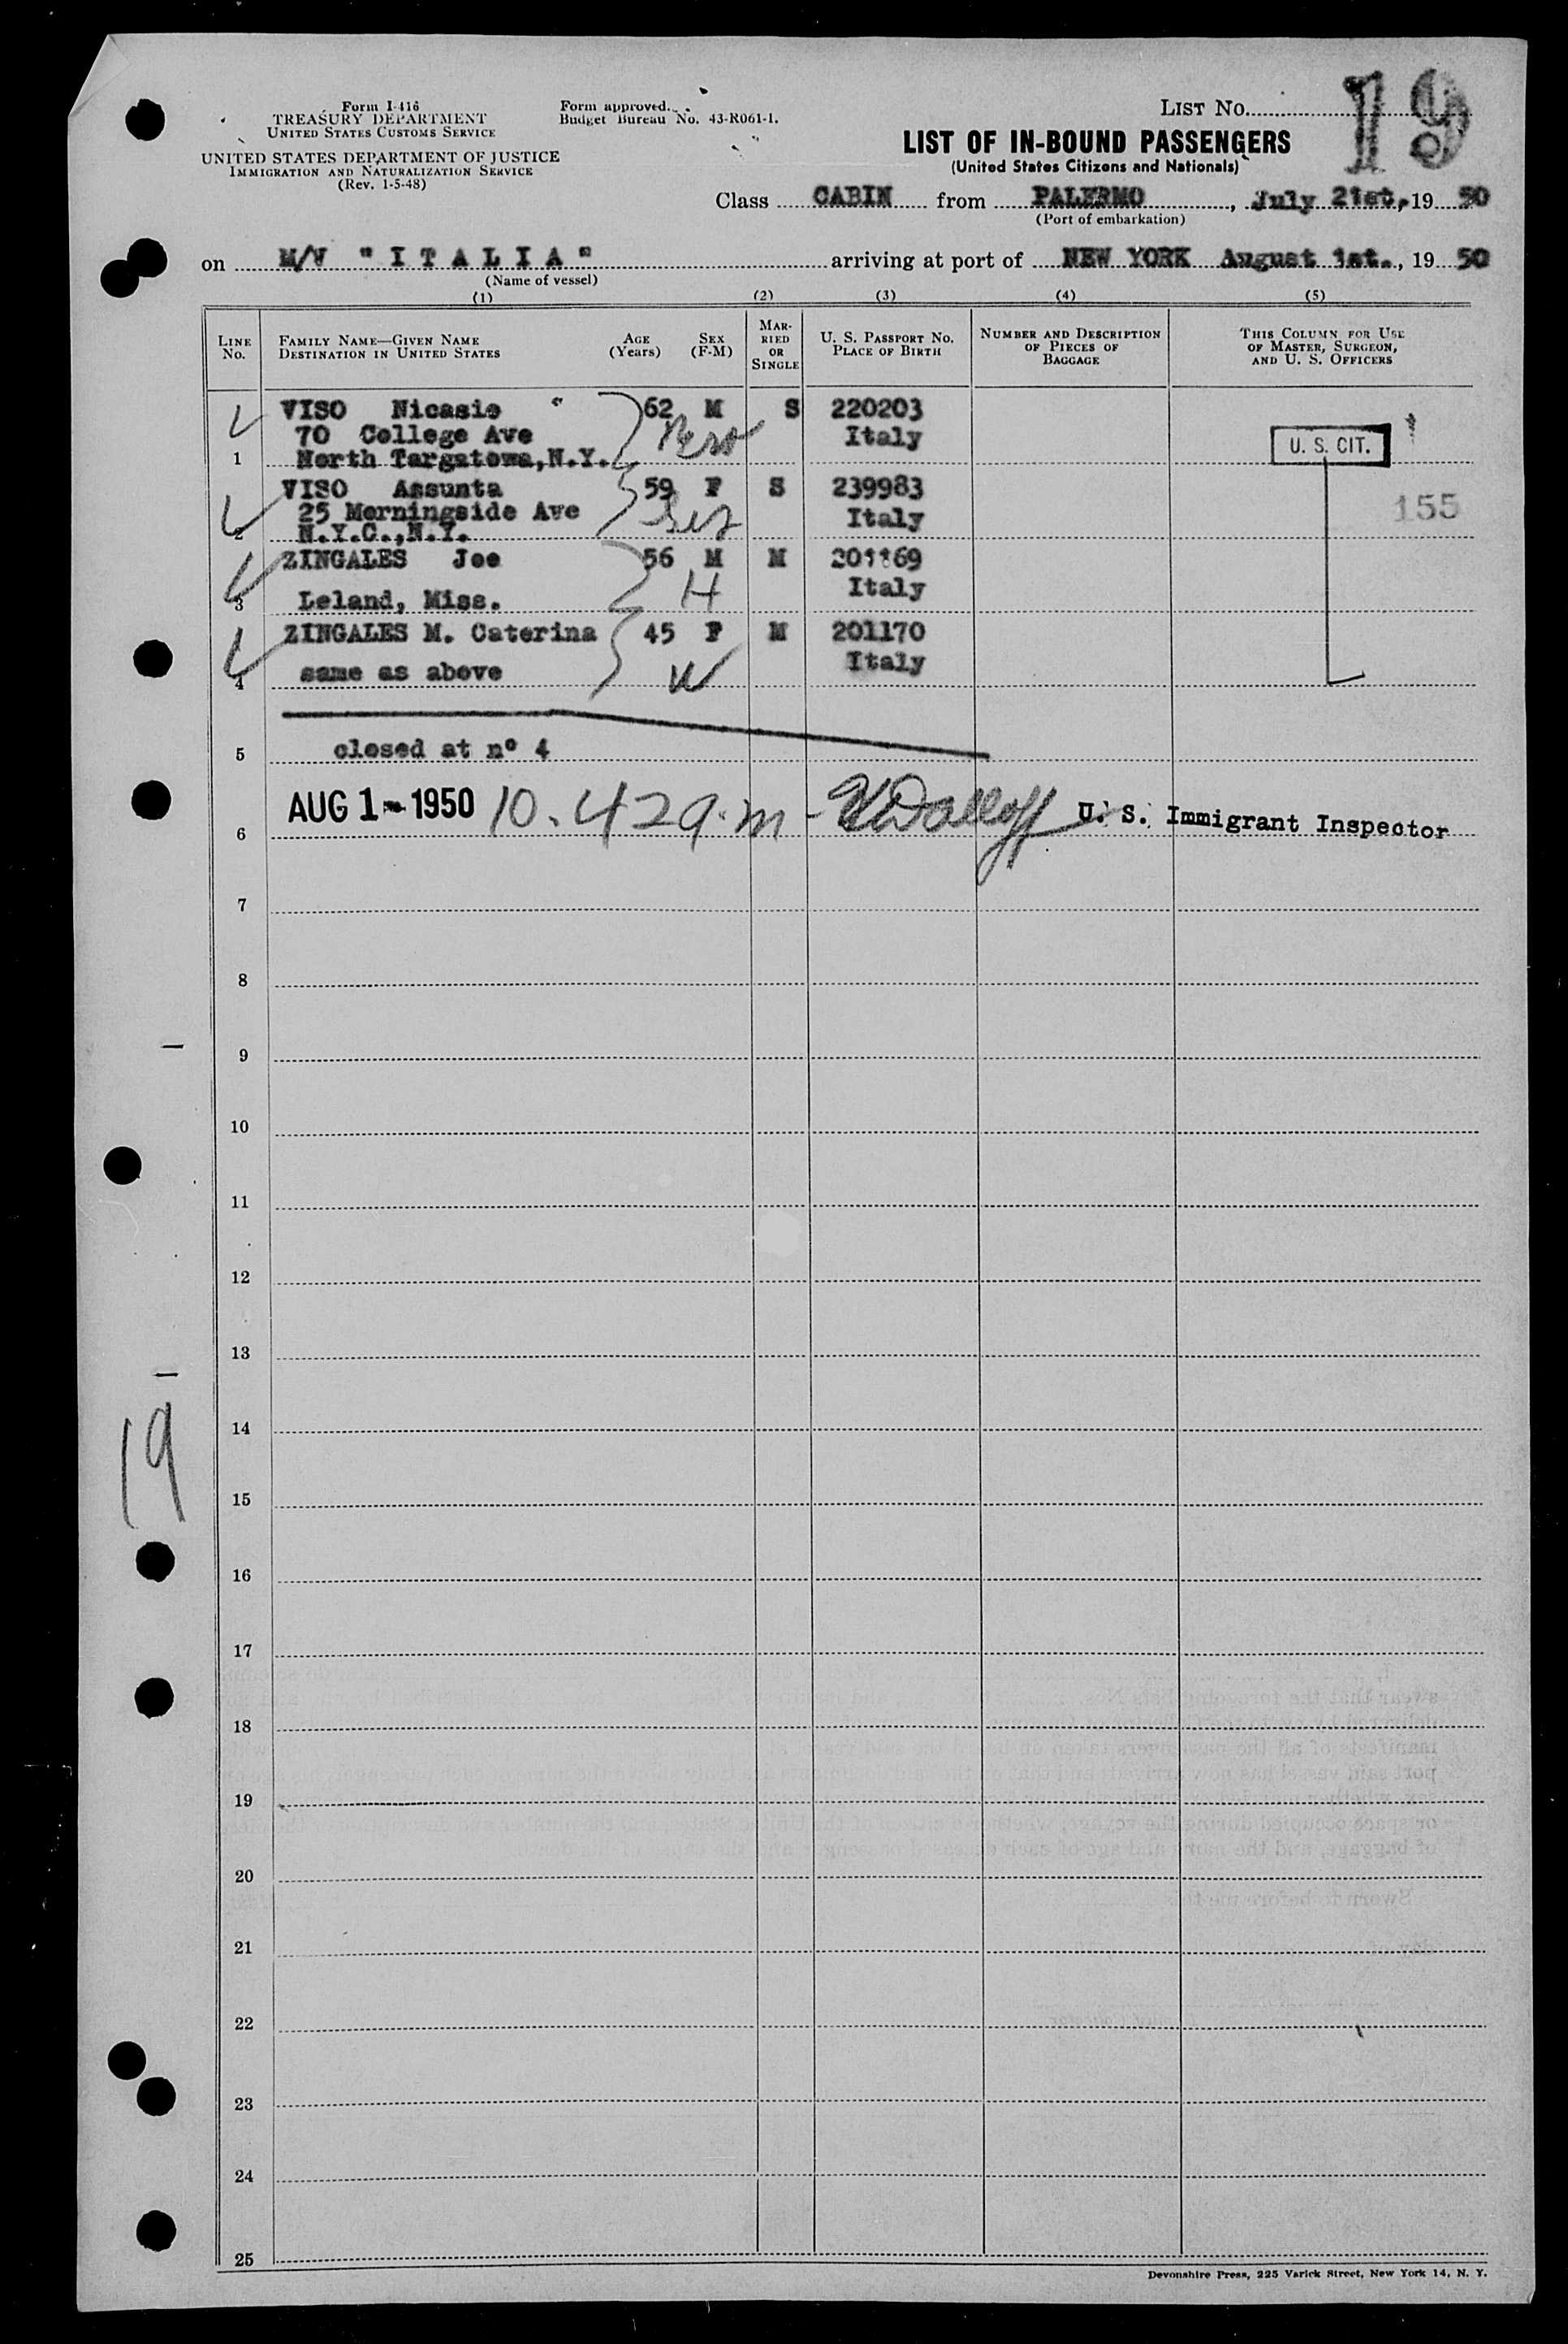 Form I-416
TREASURY DEPARTMENT
UNITED STATES CUSTOMS SERVICE
UNITED STATES DEPARTMENT OF JUSTICE
IMMIGRATION AND NATURALIZATION SERVICE
(Rev. 1-5-48)
Form approved.
Budget Bureau No. 43-R061-1.
LIST No. 19
LIST OF IN-BOUND PASSENGERS
(United States Citizens and Nationals)
Class CABIN from PALERMO, July 21st, 19 50
(Port of embarkation)
on M/V "I T A L I A" arriving at port of NEW YORK August 1st., 19 50
(Name of vessel)
(1) (2) (3) (4) (5)
LINE No.
FAMILY NAME—GIVEN NAME
DESTINATION IN UNITED STATES
AGE (Years)
SEX (F-M)
MARRIED OR SINGLE
U. S. PASSPORT No.
PLACE OF BIRTH
NUMBER AND DESCRIPTION OF PIECES OF BAGGAGE
THIS COLUMN FOR USE OF MASTER, SURGEON, AND U. S. OFFICERS
VISO Nicasio 62 M S 220203
70 College Ave Italy
1 North Targatowa, N.Y.
U. S. CIT.
VISO Assunta 59 F S 239983
25 Morningside Ave Italy
155
2 N.Y.C., N.Y.
ZINGALES Joe 56 M M 201169
H Italy
3 Leland, Miss.
ZINGALES M. Caterina 45 F M 201170
Italy
4 same as above W
5 closed at nº 4
6 AUG 1-1950 10.42 a.m - U. S. Immigrant Inspector
7
8
9
10
11
12
13
14
19
15
16
17
18
19
20
21
22
23
24
25
Devonshire Press, 225 Varick Street, New York 14, N. Y.